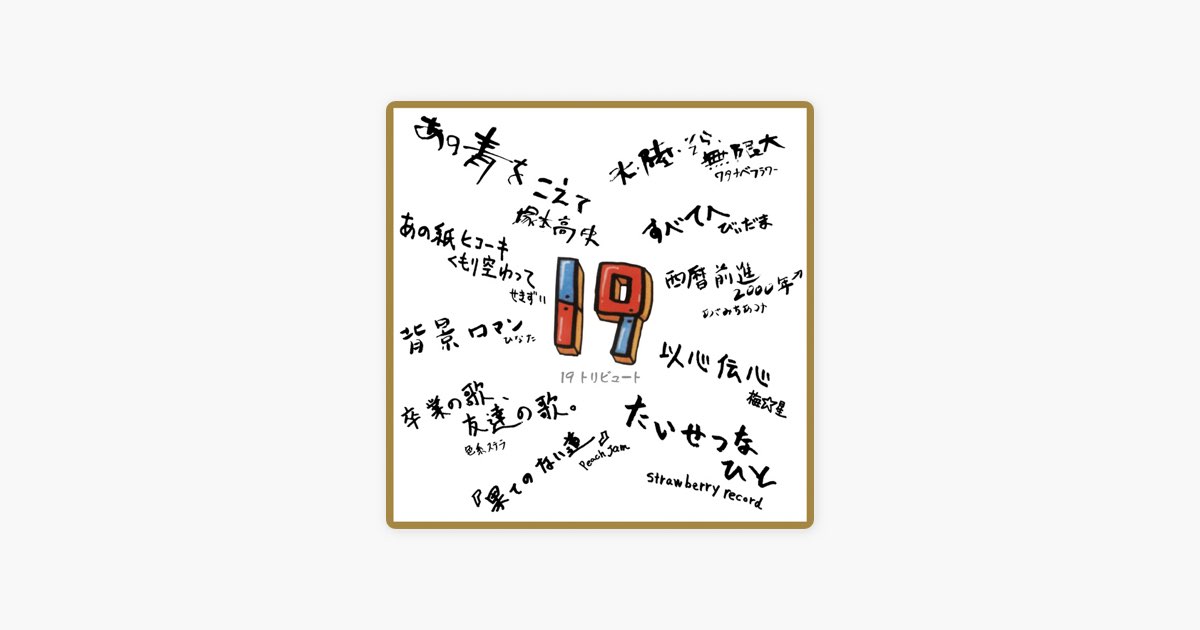 あの青を
こえて
塚本高史
大陸・そら・無限大
ワタナベフラワー
すべてへ
びぃだま
あの紙ヒコーキ
くもり空わって
せきずい
西暦前進
2000年↗
あさみちあつと
19
19 トリビュート
背景ロマン
ひなた
以心伝心
梅☆星
卒業の歌、
友達の歌。
色糸ステラ
『果てのない道』
Peach Jam
たいせつな
ひと
strawberry record